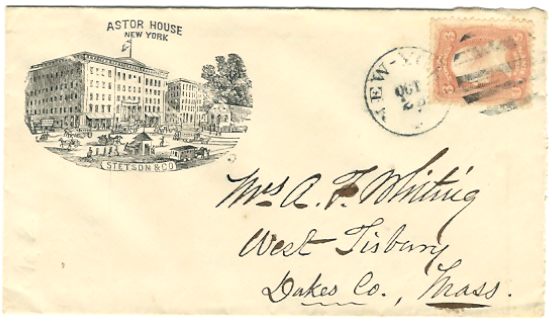 ASTOR HOUSE
NEW YORK
STETSON & CO
NEW-YO
OCT
3
3
Mrs A. F. Whiting
West Tisbury
Dukes Co., Mass.